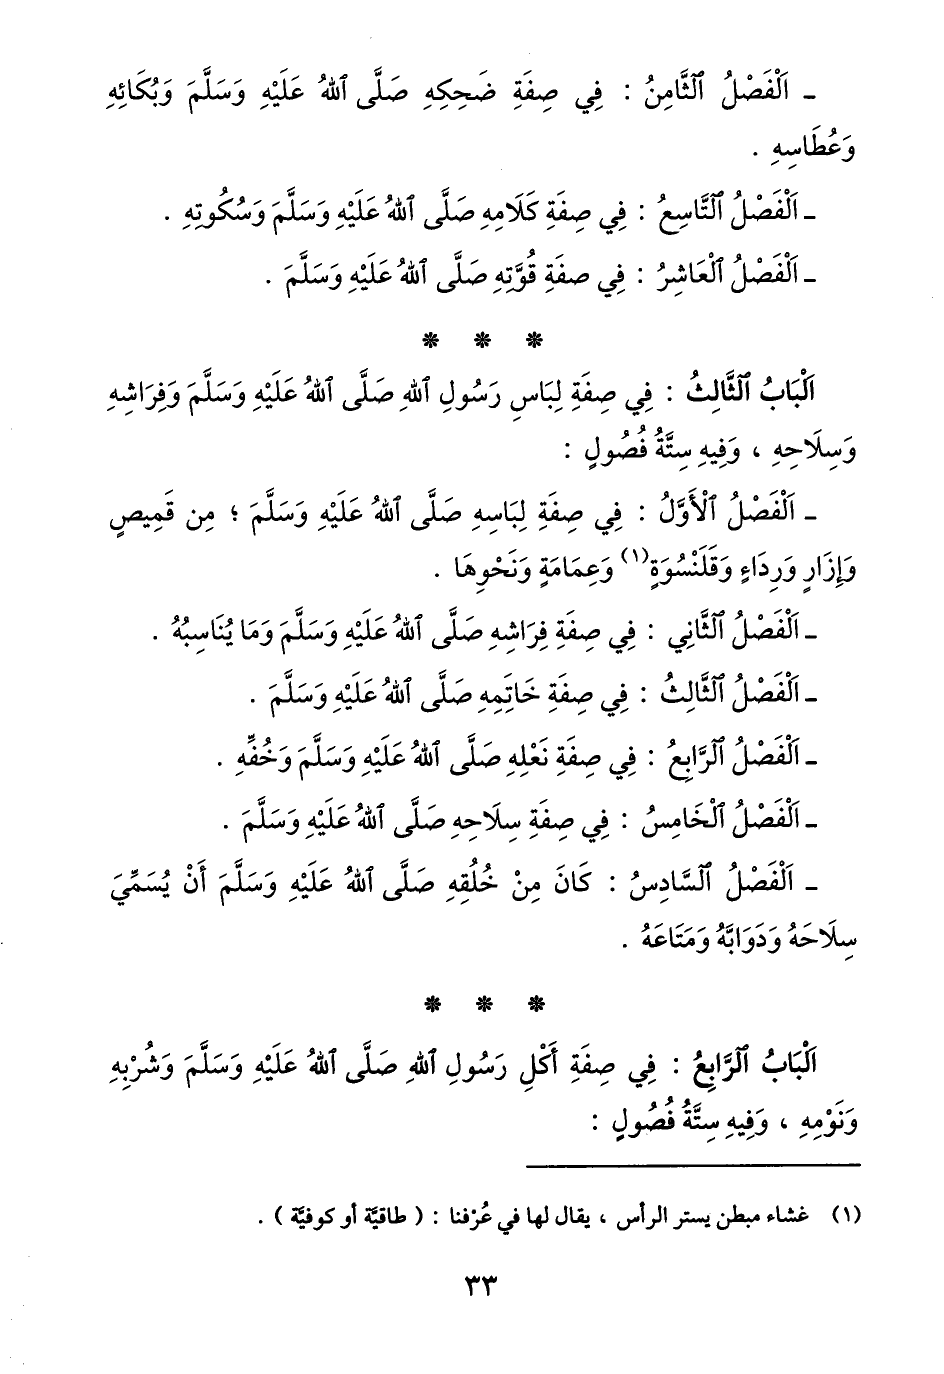 ـ اَلْفَصْلُ ٱلثَّامِنُ : فِي صِفَةِ ضَحِكِهِ صَلَّى ٱللهُ عَلَيْهِ وَسَلَّمَ وَبُكَائِهِ
وَعُطَاسِهِ .
ـ اَلْفَصْلُ ٱلتَّاسِعُ : فِي صِفَةِ كَلَامِهِ صَلَّى ٱللهُ عَلَيْهِ وَسَلَّمَ وَسُكُوتِهِ .
ـ اَلْفَصْلُ ٱلْعَاشِرُ : فِي صفَةِ قُوَّتِهِ صَلَّى ٱللهُ عَلَيْهِ وَسَلَّمَ .
* * *
اَلْبَابُ ٱلثَّالِثُ : فِي صِفَةِ لِبَاسِ رَسُولِ ٱللهِ صَلَّى ٱللهُ عَلَيْهِ وَسَلَّمَ وَفِرَاشِهِ
وَسِلَاحِهِ ، وَفِيهِ سِتَّةُ فُصُولٍ :
ـ اَلْفَصْلُ ٱلْأَوَّلُ : فِي صِفَةِ لِبَاسِهِ صَلَّى ٱللهُ عَلَيْهِ وَسَلَّمَ ؛ مِن قَمِيصٍ
وَإِزَارٍ وَرِدَاءٍ وَقَلَنْسُوَةٍ(١) وَعِمَامَةٍ وَنَحْوِهَا .
ـ اَلْفَصْلُ ٱلثَّانِي : فِي صِفَةِ فِرَاشِهِ صَلَّى ٱللهُ عَلَيْهِ وَسَلَّمَ وَمَا يُنَاسِبُهُ .
ـ اَلْفَصْلُ ٱلثَّالِثُ : فِي صِفَةِ خَاتِمِهِ صَلَّى ٱللهُ عَلَيْهِ وَسَلَّمَ .
ـ اَلْفَصْلُ ٱلرَّابِعُ : فِي صِفَةِ نَعْلِهِ صَلَّى ٱللهُ عَلَيْهِ وَسَلَّمَ وَخُفِّهِ .
ـ اَلْفَصْلُ ٱلْخَامِسُ : فِي صِفَةِ سِلَاحِهِ صَلَّى ٱللهُ عَلَيْهِ وَسَلَّمَ .
ـ اَلْفَصْلُ ٱلسَّادِسُ : كَانَ مِنْ خُلُقِهِ صَلَّى ٱللهُ عَلَيْهِ وَسَلَّمَ أَنْ يُسَمِّيَ
سِلَاحَهُ وَدَوَابَّهُ وَمَتَاعَهُ .
* * *
اَلْبَابُ ٱلرَّابِعُ : فِي صِفَةِ أَكْلِ رَسُولِ ٱللهِ صَلَّى ٱللهُ عَلَيْهِ وَسَلَّمَ وَشُرْبِهِ
وَنَوْمِهِ ، وَفِيهِ سِتَّةُ فُصُولٍ :
(١) غشاء مبطن يستر الرأس ، يقال لها في عُرْفنا : ( طاقيَّة أو كوفيَّة ) .
٣٣